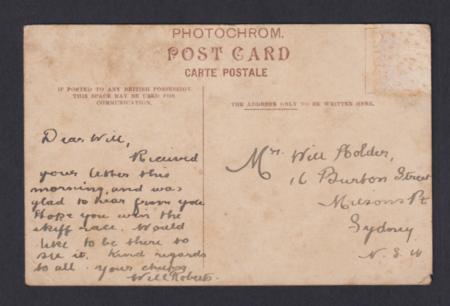 PHOTOCHROM.
POST CARD
CARTE POSTALE
IF POSTED TO ANY BRITISH POSSESSION,
THIS SPACE MAY BE USED FOR
COMMUNICATION.
THE ADDRESS ONLY TO BE WRITTEN HERE.
Dear Will,
Received
your letter this
morning, and was
glad to hear from you
Hope you win the
skiff race. Would
like to be there to
see it. Kind regards
to all. Yours
Will Roberts.
Mr. Will Holder,
16 Burton Street
Milsons Pt
Sydney
N. S. W